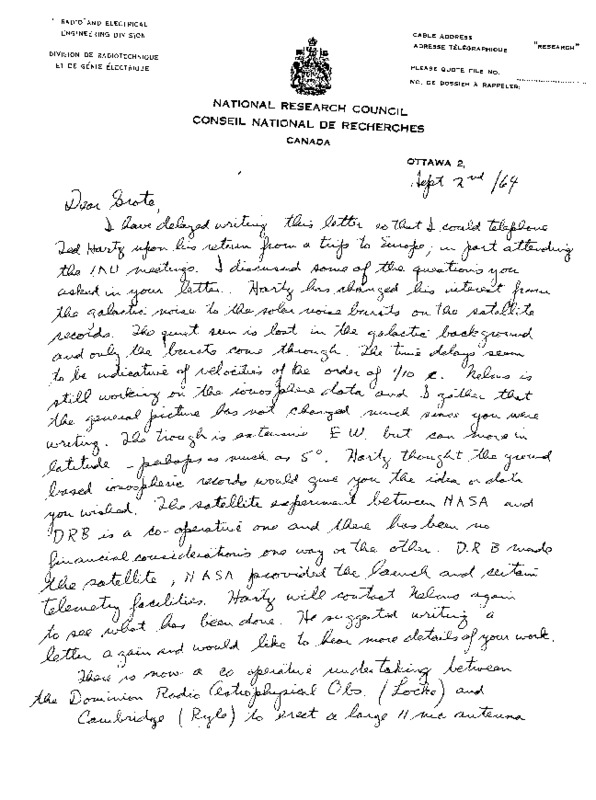 RADIO AND ELECTRICAL
ENGINEERING DIVISION
DIVISION DE RADIOTECHNIQUE
ET DE GÉNIE ÉLECTRIQUE
CABLE ADDRESS
ADRESSE TÉLÉGRAPHIQUE "RESEARCH"
PLEASE QUOTE FILE NO.
NO. DE DOSSIER À RAPPELER:
NATIONAL RESEARCH COUNCIL
CONSEIL NATIONAL DE RECHERCHES
CANADA
OTTAWA 2,
Sept 2nd /64
Dear Grote,
I have delayed writing this letter so that I could telephone
Ted Hartz upon his return from a trip to Europe; in part attending
the IAU meetings. I discussed some of the questions you
asked in your letter. Hartz has changed his interest from
the galactic noise to the solar noise bursts on the satellite
records. The quiet sun is lost in the galactic background
and only the bursts come through. The time delays seem
to be indicative of velocities of the order of 1/10 c. Nelms is
still working on the ionosphere data and I gather that
the general picture has not changed much since you were
writing. The trough is extensive E W. but can move in
latitude - perhaps as much as 5°. Hartz thought the ground
based ionospheric records would give you the idea or data
you wished. The satellite experiment between NASA and
DRB is a co-operative one and there has been no
financial considerations one way or the other. D.R B made
the satellite, NASA provided the launch and certain
telemetry facilities. Hartz will contact Nelms again
to see what has been done. He suggested writing a
letter again and would like to hear more details of your work.
There is now a co operative undertaking between
the Dominion Radio Astrophysical Obs. (Locke) and
Cambridge (Ryle) to erect a large 11 mc antenna